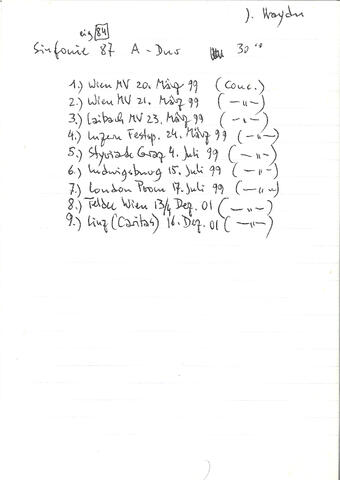 J. Haydn
eig 84
Sinfonie 87 A-Dur 30'
1.) Wien MV 20. März 99 (Conc.)
2.) Wien MV 21. März 99 (—"—)
3.) Laibach MV 23. März 99 (—"—)
4.) Luzern Festsp. 24. März 99 (—"—)
5.) Styriade Graz 4. Juli 99 (—"—)
6.) Ludwigsburg 15. Juli 99 (—"—)
7.) London Prom 17. Juli 99 (—"—)
8.) Teldec Wien 13/4 Dez. 01 (—"—)
9.) Linz (Caritas) 16. Dez. 01 (—"—)